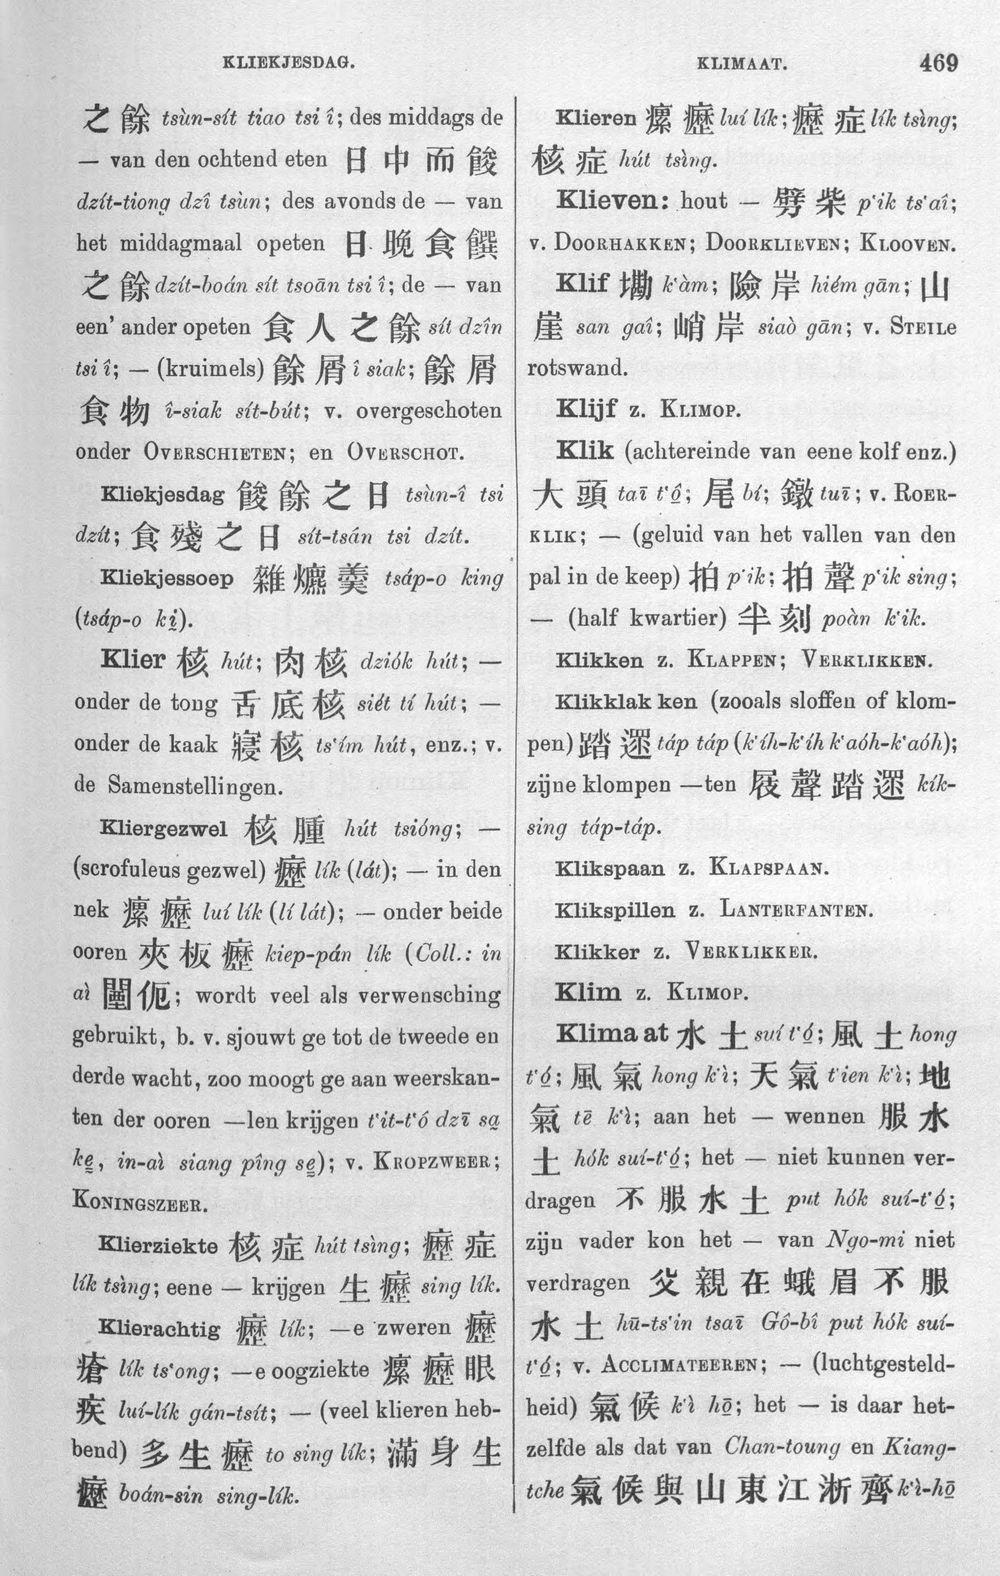 KLIEKJESDAG.
KLIMAAT.
469
之 餘 tsùn-sít tiao tsi î; des middags de
— van den ochtend eten 日 中 而 餕
dzít-tiong dzî tsùn; des avonds de — van
het middagmaal opeten 日 晚 食 饌
之 餘 dzít-boán sít tsoān tsi î; de — van
een' ander opeten 食 人 之 餘 sít dzîn
tsi î; — (kruimels) 餘 屑 î siak; 餘 屑
食 物 î-siak sít-bút; v. overgeschoten
onder OVERSCHIETEN; en OVERSCHOT.
Kliekjesdag 餕 餘 之 日 tsùn-î tsi
dzít; 食 殘 之 日 sít-tsán tsi dzít.
Kliekjessoep 雜 爊 羹 tsáp-o king
(tsáp-o ki̤).
Klier 核 hút; 肉 核 dziók hút; —
onder de tong 舌 底 核 siét tí hút; —
onder de kaak 核 ts'ím hút, enz.; v.
de Samenstellingen.
Kliergezwel 核 腫 hút tsióng; —
(scrofuleus gezwel) 癧 lík (lát); — in den
nek 瘰 癧 luí lík (lí lát); — onder beide
ooren 夾 板 癧 kiep-pán lík (Coll.: in
aì 闉 㐹; wordt veel als verwensching
gebruikt, b. v. sjouwt ge tot de tweede en
derde wacht, zoo moogt ge aan weerskan-
ten der ooren —len krijgen t'it-t'ó dzī sa̤
ke̤, in-aì siang pîng se̤); v. KROPZWEER;
KONINGSZEER.
Klierziekte 核 症 hút tsìng; 癧 症
lík tsìng; eene — krijgen 生 癧 sing lík.
Klierachtig 癧 lík; —e zweren 癧
瘡 lík ts'ong; —e oogziekte 瘰 癧 眼
疾 luí-lík gán-tsít; — (veel klieren heb-
bend) 多 生 癧 to sing lík; 滿 身 生
癧 boán-sin sing-lík.
Klieren 瘰 癧 luí lík; 癧 症 lík tsìng;
核 症 hút tsìng.
Klieven: hout — 劈 柴 p'ik ts'aî;
v. DOORHAKKEN; DOORKLIEVEN; KLOOVEN.
Klif 墈 k'àm; 險 岸 hiém gān; 山
崖 san gaî; 峭 岸 siaò gān; v. STEILE
rotswand.
Klijf z. KLIMOP.
Klik (achtereinde van eene kolf enz.)
大 頭 taī t'ô; 尾 bí; 鐓 tuī; v. ROER-
KLIK; — (geluid van het vallen van den
pal in de keep) 拍 p'ik; 拍 聲 p'ik sing;
— (half kwartier) 半 刻 poàn k'ik.
Klikken z. KLAPPEN; VERKLIKKEN.
Klikklak ken (zooals sloffen of klom-
pen) 踏 遝 táp táp (k'íh-k'íh k'aóh-k'aóh);
zijne klompen —ten 屐 聲 踏 遝 kík-
sing táp-táp.
Klikspaan z. KLAPSPAAN.
Klikspillen z. LANTERFANTEN.
Klikker z. VERKLIKKER.
Klim z. KLIMOP.
Klimaat 水 土 suí t'ó̤; 風 土 hong
t'ó̤; 風 氣 hong k'ì; 天 氣 t'ien k'ì; 地
氣 tē k'ì; aan het — wennen 服 水
土 hók suí-t'ó̤; het — niet kunnen ver-
dragen 不 服 水 土 put hók suí-t'ó̤;
zijn vader kon het — van Ngo-mi niet
verdragen 父 親 在 蛾 眉 不 服
水 土 hū-ts'in tsaī Gô-bî put hók suí-
t'ó̤; v. ACCLIMATEEREN; — (luchtgesteld-
heid) 氣 候 k'ì hō̤; het — is daar het-
zelfde als dat van Chan-toung en Kiang-
tche 氣 候 與 山 東 江 淅 齊 k'ì-hō̤